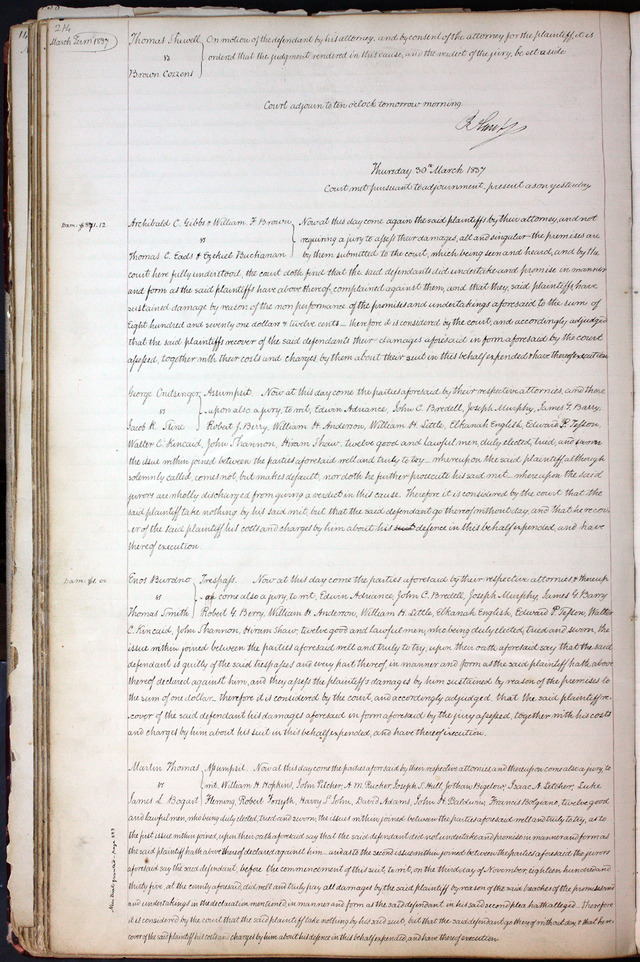 214
March Term 1837
Thomas Jewell } On motion of the defendant by his attorney, and by consent of the attorney for the plaintiff it is
vs ordered that the judgment rendered in this cause, and the verdict of the jury, be set aside
Brown Cozzens
Court adjourn to ten o'clock tomorrow morning
Thursday 30th March 1837
Court met pursuant to adjournment, present as on yesterday
Dam: $871.12
Archibald C. Gibbs & William F Brown } Now at this day come again the said plaintiffs by their attorney, and not
vs requiring a jury to assess their damages, all and singular the premises are
Thomas C. Eads & Ezekiel Buchanan } by them submitted to the court, which being seen and heard, and by the
court here fully understood, the court doth find that the said defendants did undertake and promise in manner
and form as the said plaintiffs have above thereof complained against them, and that they, said plaintiffs have
sustained damage by reason of the non performance of the promises and undertakings aforesaid to the sum of
Eight hundred and seventy one dollars & twelve cents – therefore it is considered by the court, and accordingly adjudged
that the said plaintiffs recover of the said defendants their damages aforesaid in form aforesaid by the court
assessed, together with their costs and charges by them about their suit in this behalf expended & have thereof execution
George Assumpsit. Now at this day come the parties aforesaid by their respective attornies, and there
vs upon also a jury, to wit, Edwin Advance, John C. Bredell, Joseph Murphy, James G. Barry,
Jacob R. Stine Robert G. Berry, William H. Anderson, William H. Little, Elkanah English, Edward P. Tesson,
Walter C. Kincaid, John Shannon, Hiram Shaw, twelve good and lawful men, duly elected, tried, and sworn
the issue within joined between the parties aforesaid well and truly to try – whereupon the said plaintiff although
solemnly called, comes not, but makes default, nor doth he further prosecute his said writ – whereupon the said
jurors are wholly discharged from giving a verdict in this cause. Therefore it is considered by the court that the
said plaintiff take nothing by his said writ, but that the said defendant go thereof without day, and that he recov-
-er of the said plaintiff his costs and charges by him about his suit defence in this behalf expended, and have
thereof execution.
Dam: $1.00
Enos Trespass. Now at this day come the parties aforesaid by their respective attornies & thereup
vs on come also a jury, to wit, Edwin Advance, John C. Bredell, Joseph Murphy, James G Barry
Thomas Smith Robert G. Berry, William H. Anderson, William H. Little, Elkanah English, Edward P. Tesson, Walter
C. Kincaid, John Shannon, Hiram Shaw, twelve good and lawful men, who being duly elected, tried and sworn, the
issue within joined between the parties aforesaid well and truly to try, upon their oath aforesaid say that the said
defendant is guilty of the said trespasses and every part thereof, in manner and form as the said plaintiff hath above
thereof declared against him, and they assess the plaintiff's damages by him sustained by reason of the premises to
the sum of one dollar – therefore it is considered by the court, and accordingly adjudged, that the said plaintiff re-
-cover of the said defendant his damages aforesaid in form aforesaid by the jury assessed, together with his costs
and charges by him about his suit in this behalf expended, and have thereof execution.
Martin Thomas Assumpsit. Now at this day come the parties aforesaid by their respective attornies and thereupon come also a jury to
vs wit. William H. Hopkins, John Pitcher, A. M. Rucker, Joseph S. Hull, Jotham Bigelow, Isaac N. Letcher, Luke
James L. Bogart Fleming, Robert Forsyth, Harry S. John, David Adams, John H. Baldwin, Francis Bolgiano, twelve good
and lawful men, who being duly elected, tried and sworn, the issues within joined between the parties aforesaid well and truly to try, as to
the first issue within joined, upon their oath aforesaid say that the said defendant did not undertake and promise in manner and form as
the said plaintiff hath above thereof declared against him – and as to the second issue within joined between the parties aforesaid the jurors
aforesaid say the said defendant, before the commencement of this suit, to wit, on the third day of November, eighteen hundred and
thirty five, at the county aforesaid, did well and truly pay all damages by the said plaintiff by reason of the said breaches of the promises
and undertakings in the declaration mentioned, in manner and form as the said defendant in his said second plea hath alleged – Therefore
it is considered by the court that the said plaintiff take nothing by his said suit, but that the said defendant go thereof without day & that he re-
cover of the said plaintiff his costs and charges by him about his defence in this behalf expended, and have thereof execution
New trial granted – page